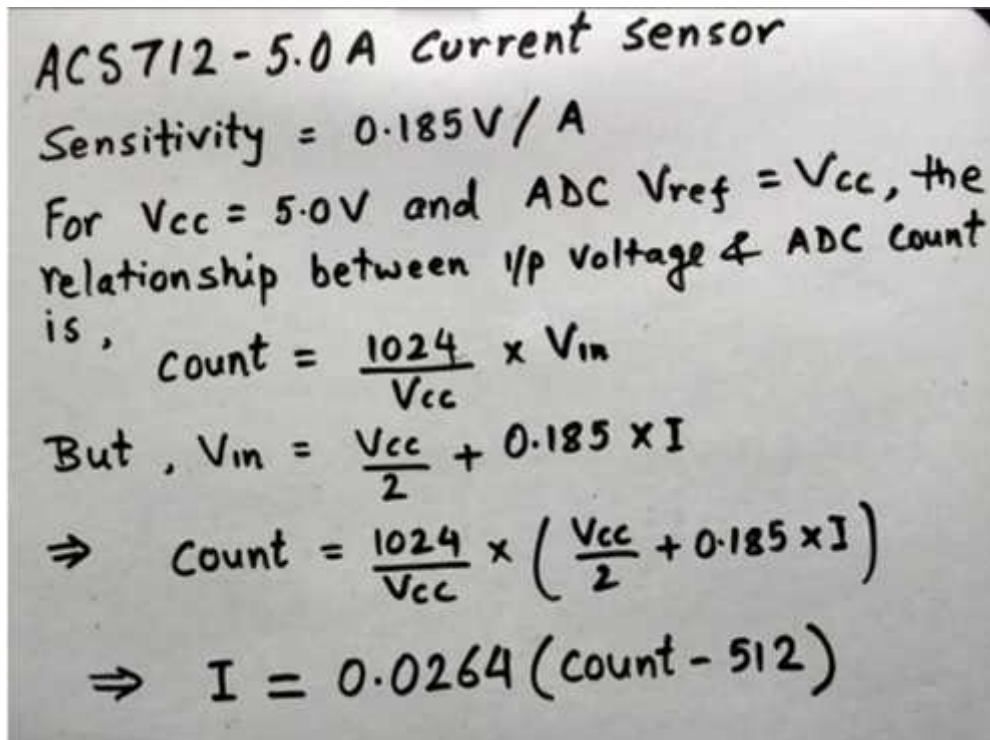 ACS712-5.0A Current sensor
Sensitivity = 0.185V/A
For Vcc = 5.0V and ADC Vref = Vcc, the
relationship between i/p voltage & ADC count
is,
count = 1024/Vcc x Vin
But, Vin = Vcc/2 + 0.185 x I
⇒ Count = 1024/Vcc x (Vcc/2 + 0.185 x I)
⇒ I = 0.0264 (count - 512)